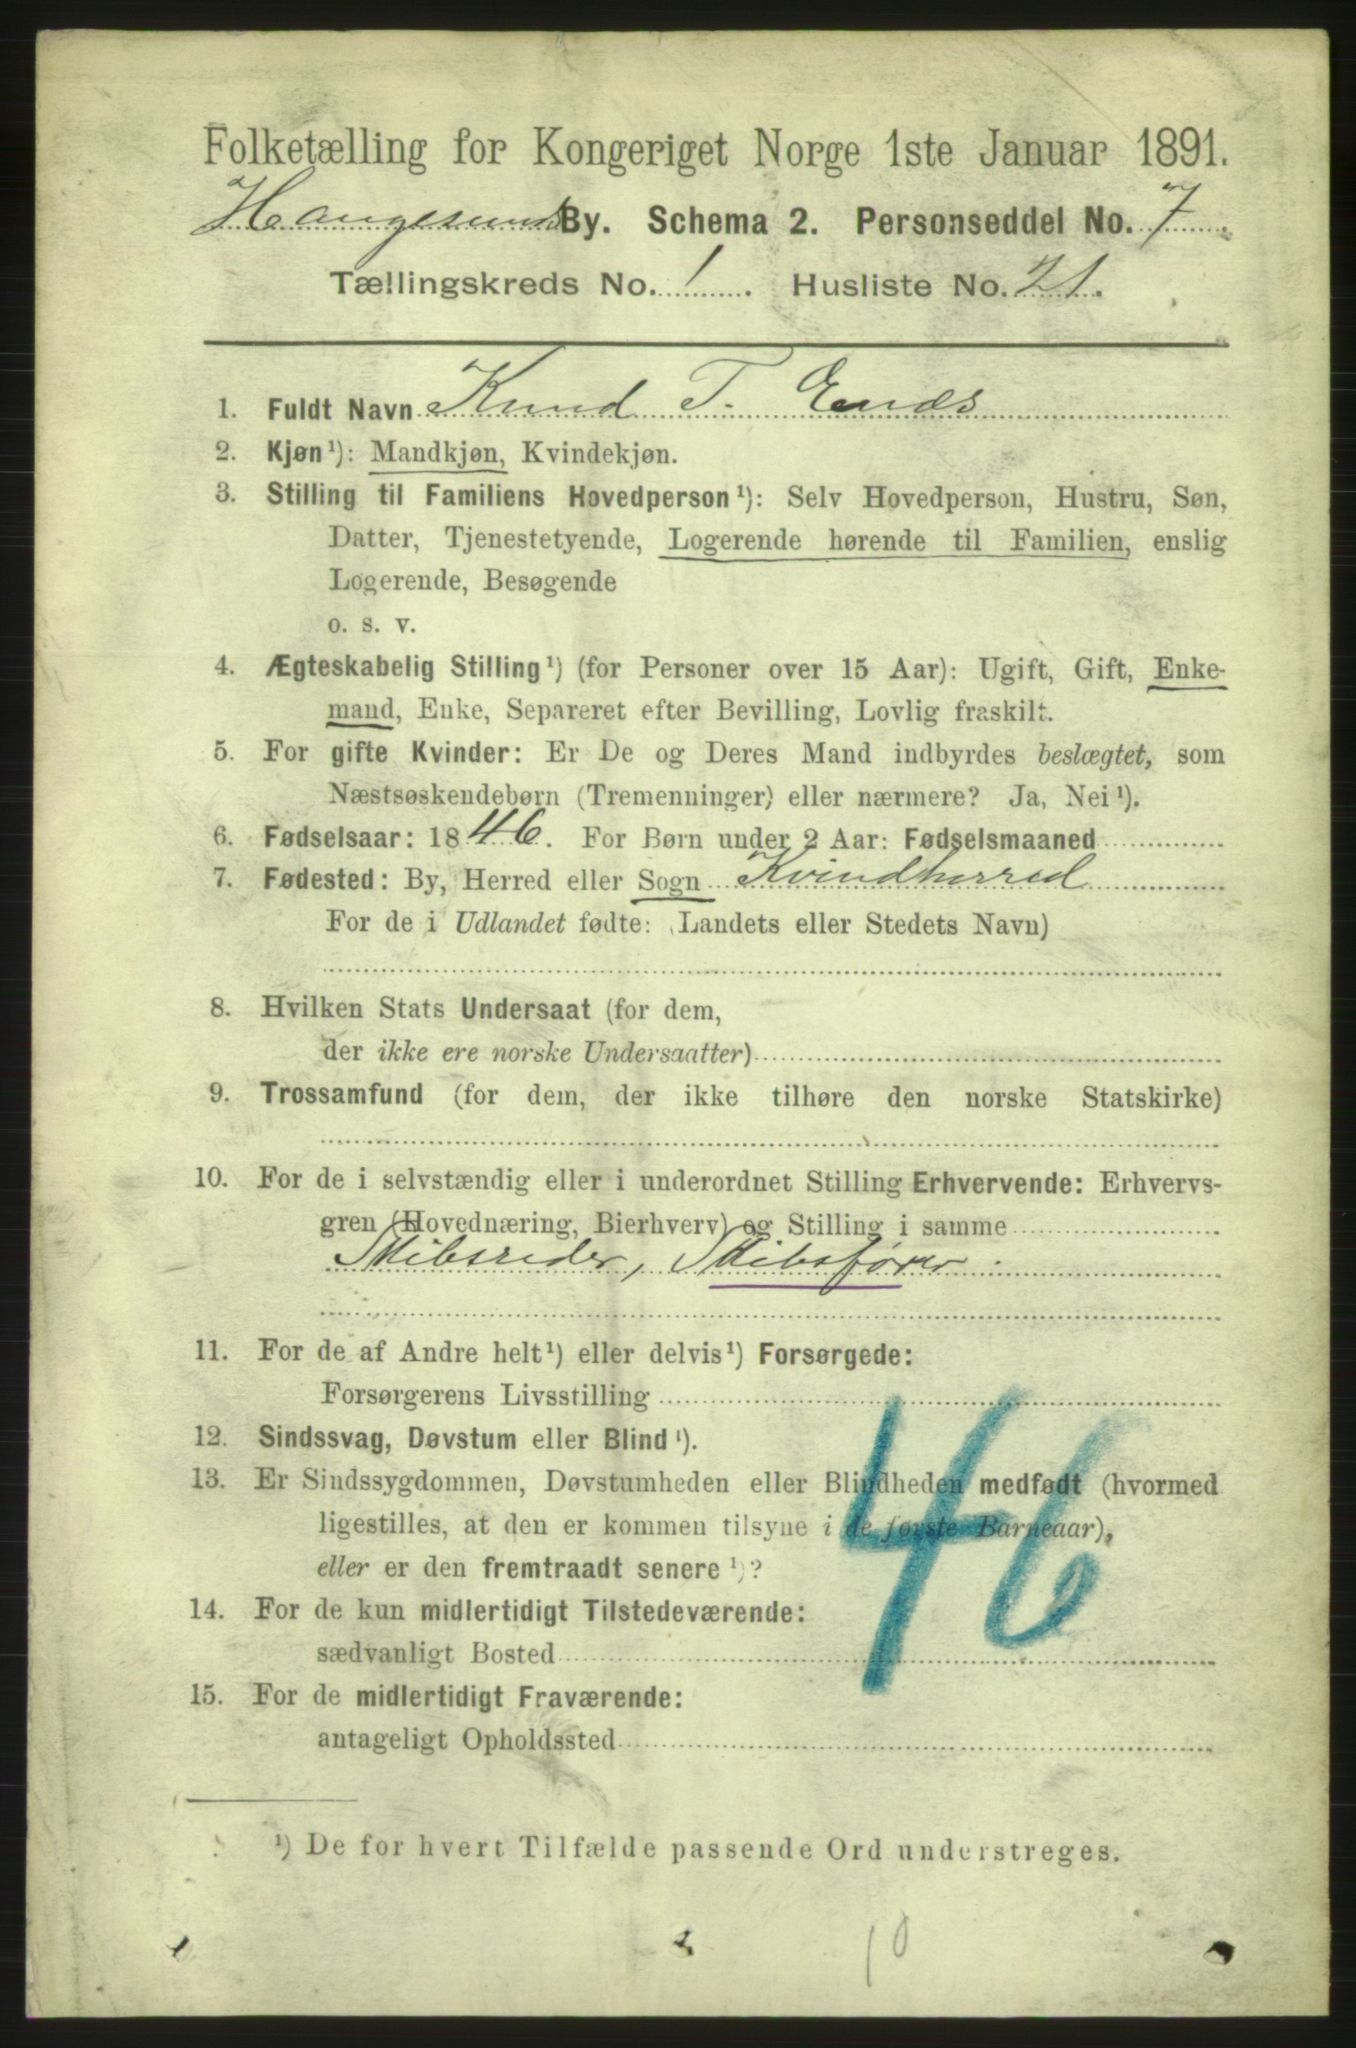 Folketælling for Kongeriget Norge 1ste Januar 1891.
Haugesunds By. Schema 2. Personseddel No. 7
Tællingskreds No. 1. Husliste No. 21.
1. Fuldt Navn Knud T. Enæs
2. Kjøn¹): Mandkjøn, Kvindekjøn.
3. Stilling til Familiens Hovedperson¹): Selv Hovedperson, Hustru, Søn,
Datter, Tjenestetyende, Logerende hørende til Familien, enslig
Logerende, Besøgende
o. s. v.
4. Ægteskabelig Stilling¹) (for Personer over 15 Aar): Ugift, Gift, Enke-
mand, Enke, Separeret efter Bevilling, Lovlig fraskilt.
5. For gifte Kvinder: Er De og Deres Mand indbyrdes beslægtet, som
Næstsøskendebørn (Tremenninger) eller nærmere? Ja, Nei¹).
6. Fødselsaar: 1846. For Børn under 2 Aar: Fødselsmaaned
7. Fødested: By, Herred eller Sogn Kvindherred
For de i Udlandet fødte: (Landets eller Stedets Navn)
8. Hvilken Stats Undersaat (for dem,
der ikke ere norske Undersaatter)
9. Trossamfund (for dem, der ikke tilhøre den norske Statskirke)
10. For de i selvstændig eller i underordnet Stilling Erhvervende: Erhvervs-
gren (Hovednæring, Bierhverv) og Stilling i samme
Skibsreder, Skibsfører.
11. For de af Andre helt¹) eller delvis¹) Forsørgede:
Forsørgerens Livsstilling
12. Sindssvag, Døvstum eller Blind¹).
13. Er Sindssygdommen, Døvstumheden eller Blindheden medfødt (hvormed
ligestilles, at den er kommen tilsyne i de første Barneaar),
eller er den fremtraadt senere¹)?
14. For de kun midlertidigt Tilstedeværende:
sædvanligt Bosted
15. For de midlertidigt Fraværende:
antageligt Opholdssted
46
¹) De for hvert Tilfælde passende Ord understreges.
10